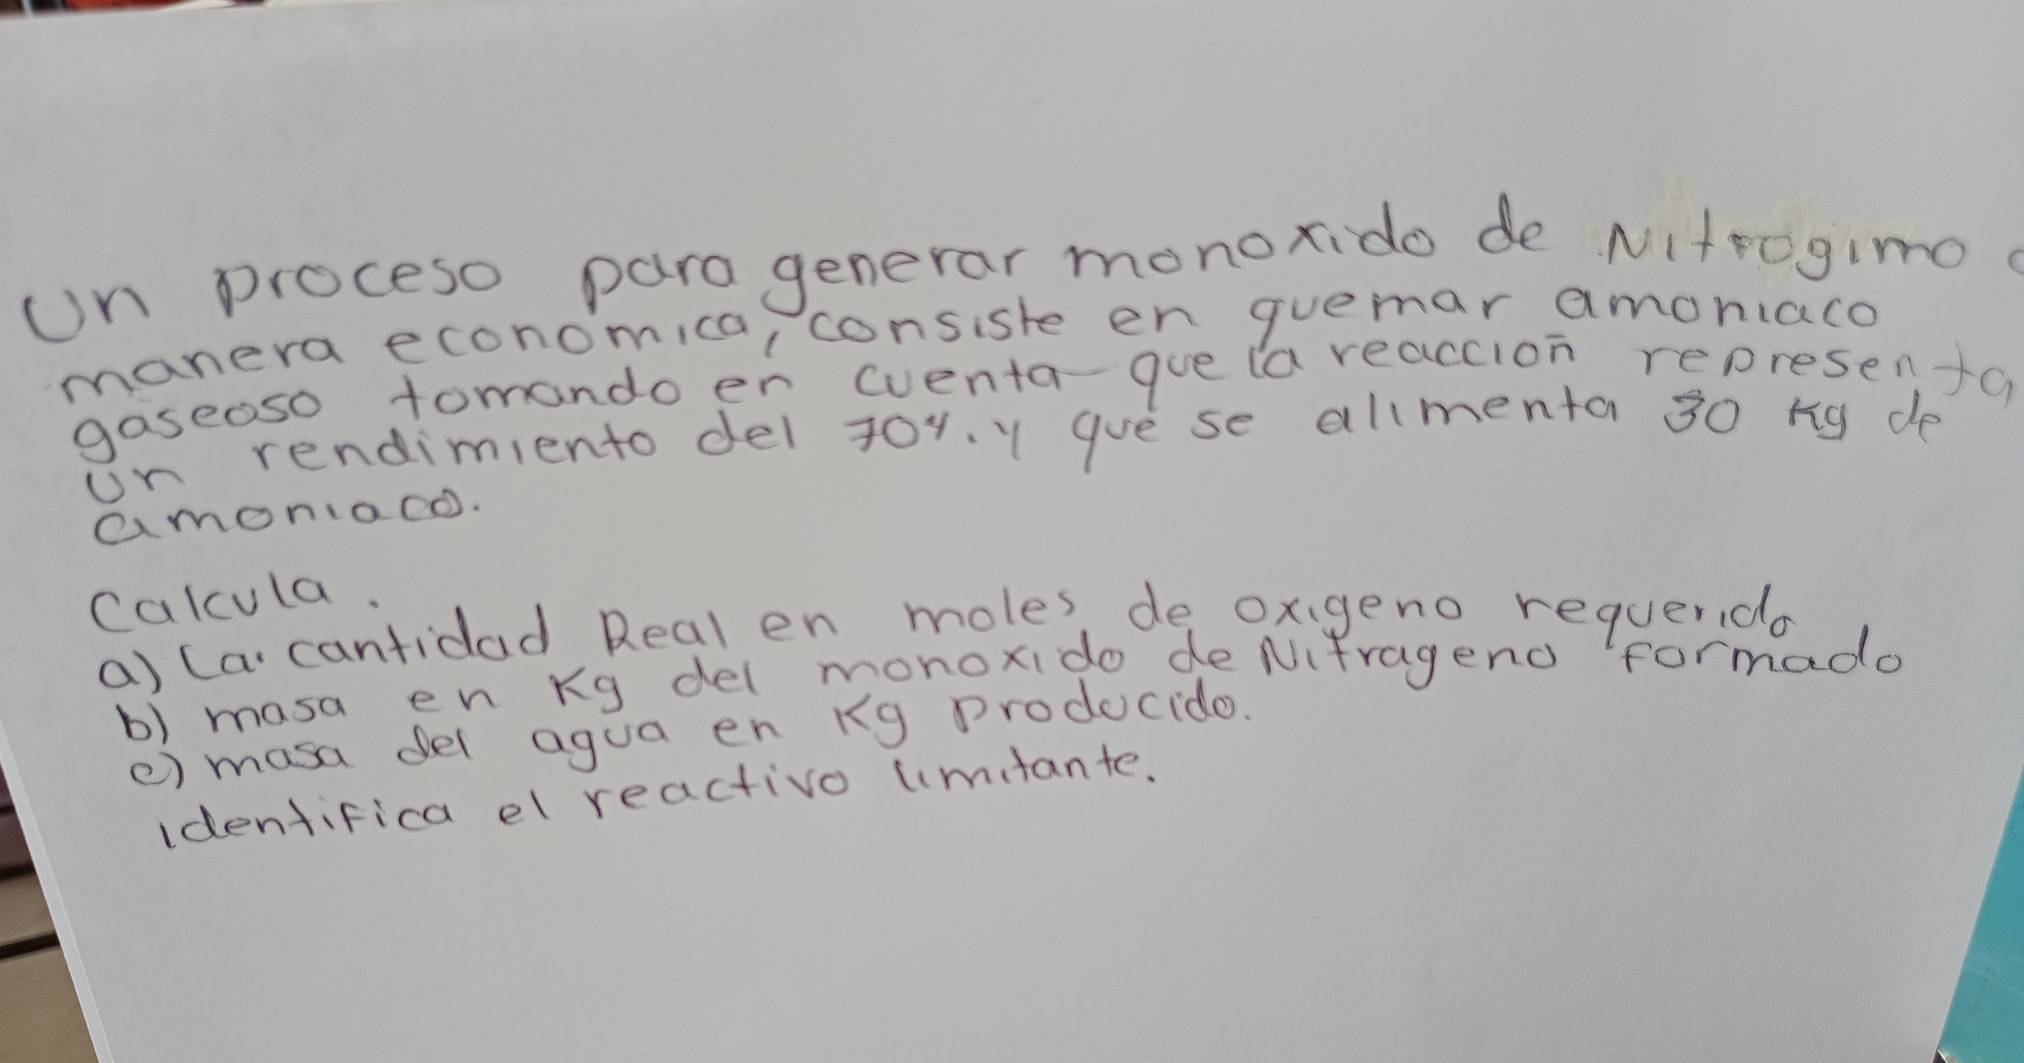 Un proceso para generar monoxido de Nitrogimo
manera economica, consiste en quemar amoniaco
gaseoso tomando en cuenta que la reacción representa
un rendimiento del 70%. y que se alimenta 30 Kg de
amoniaco.
Calcula.
a) La cantidad Real en moles de oxigeno requerido
b) masa en Kg del monoxido de Nitrageno formado
c) masa del agua en Kg producido.
identifica el reactivo limitante.